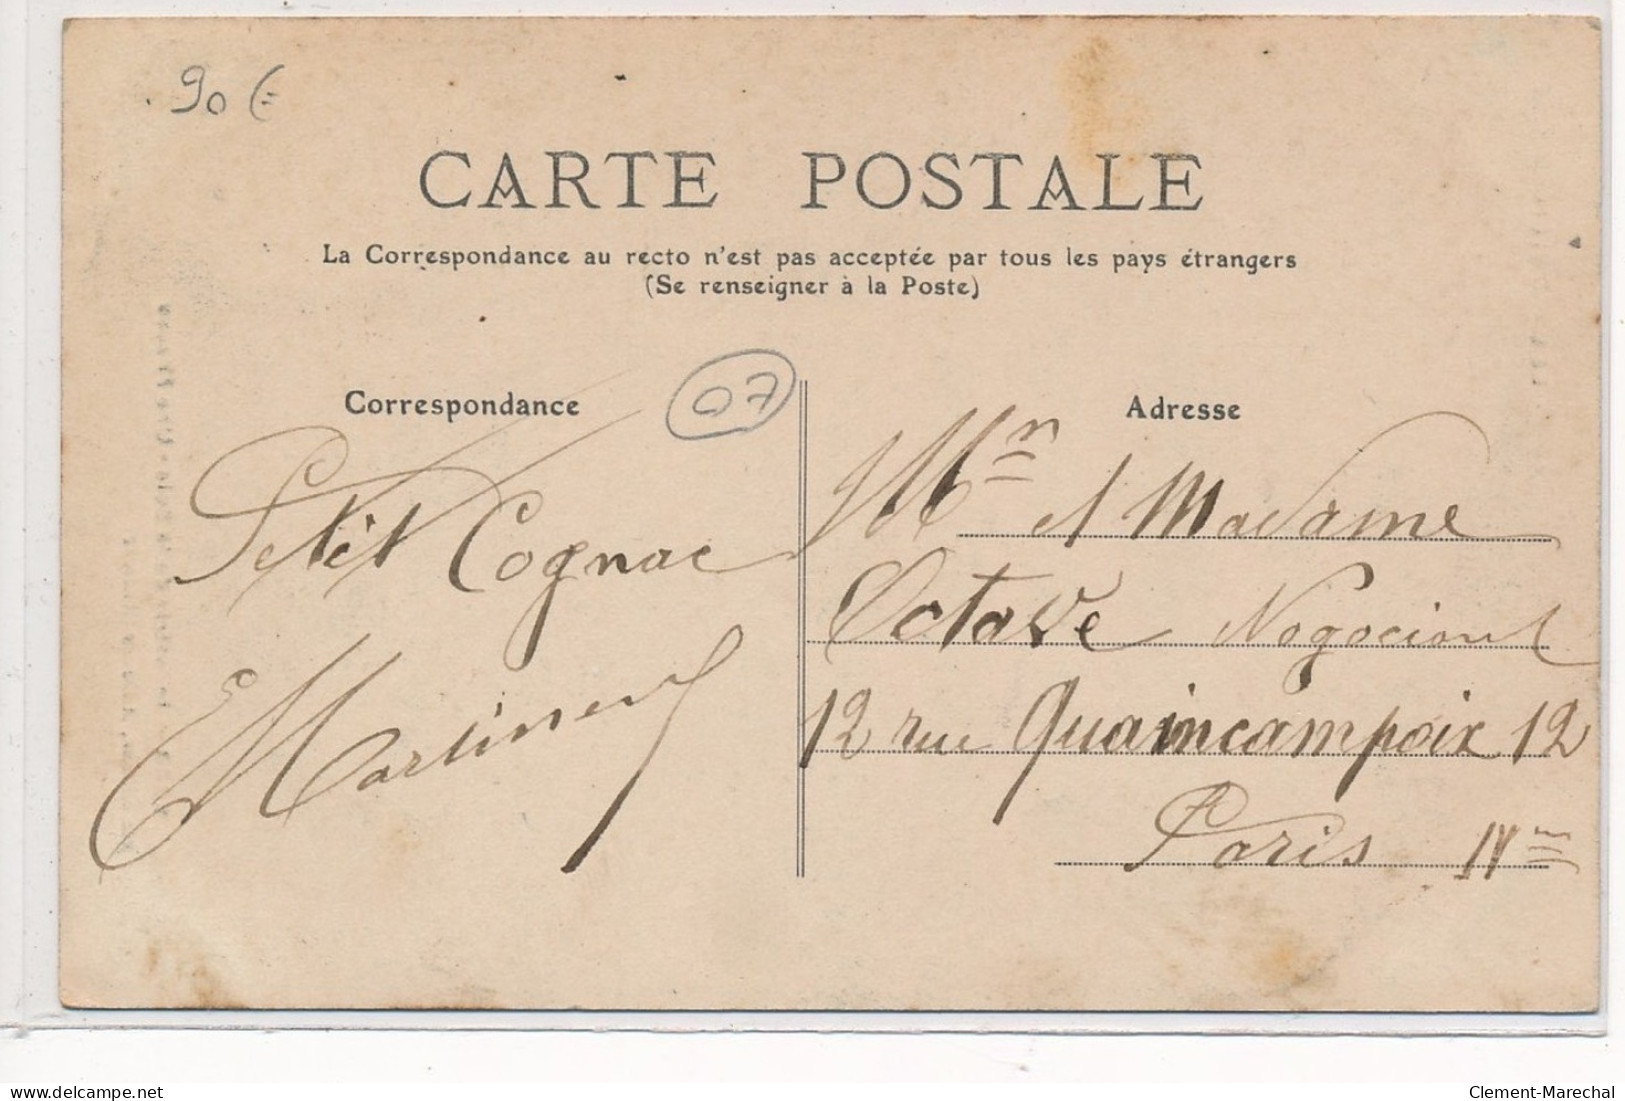 90 €
CARTE POSTALE
La Correspondance au recto n'est pas acceptée par tous les pays étrangers
(Se renseigner à la Poste)
Correspondance
07
Adresse
Petit Cognac
Martinent
Mr et Madame
Octave Nogociant
12 rue Quaincampoix 12
Paris IVme
delcampe.net
Clement-Marechal